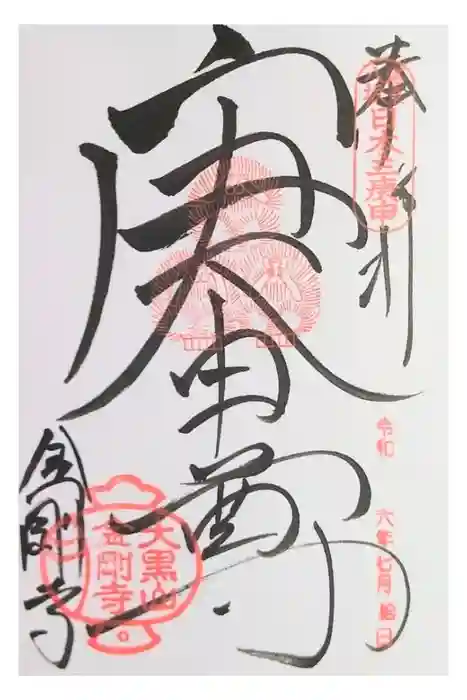 奉拝
日本三庚申
庚申尊
令和 六年七月拾日
大黒山
金剛寺
金剛寺